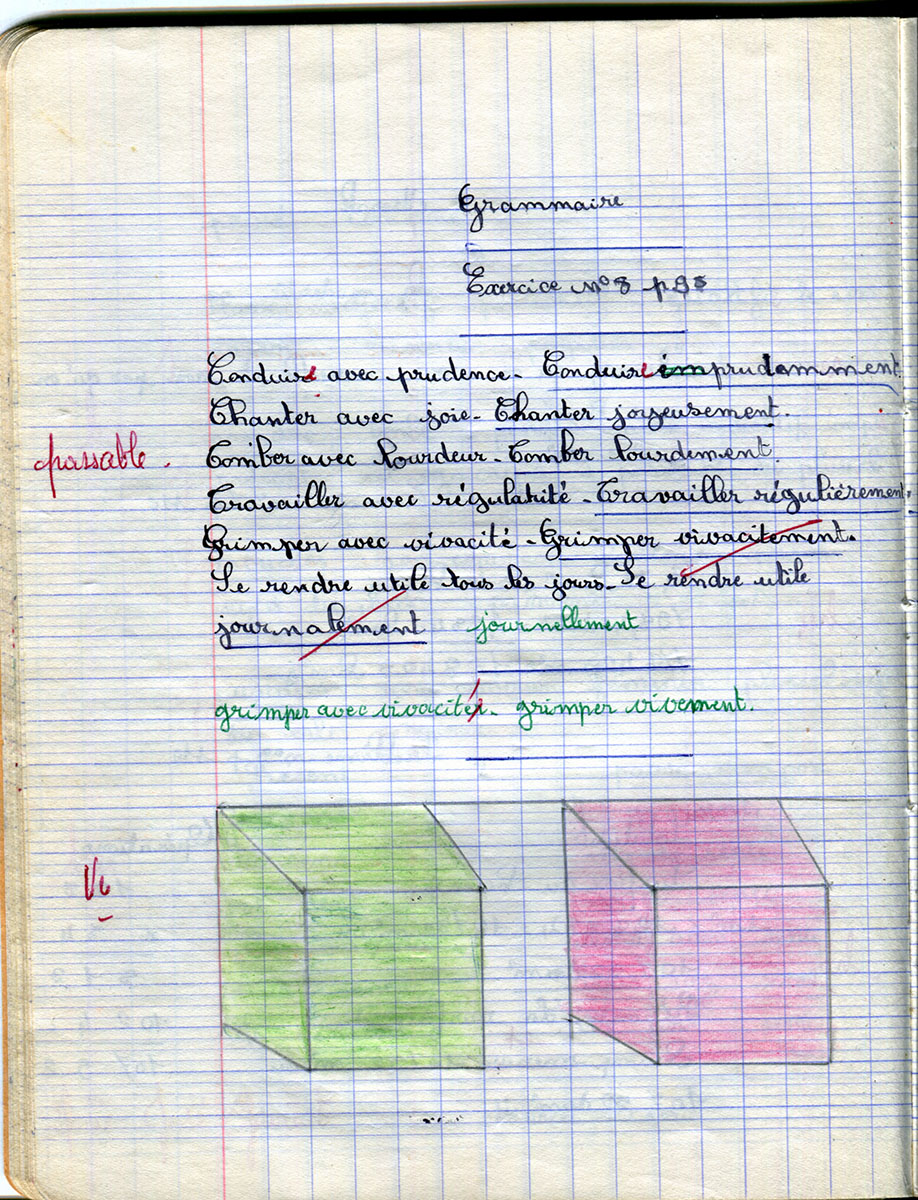 Grammaire
Exercice n°8 p 98
Conduire avec prudence - Conduire imprudemment.
Chanter avec joie - Chanter joyeusement.
passable.
Tomber avec lourdeur - Tomber lourdement.
Travailler avec régularité - Travailler régulièrement.
Grimper avec vivacité - Grimper vivacitement.
Se rendre utile tous les jours - Se rendre utile
journalement journellement
grimper avec vivacité. grimper vivement.
Vu